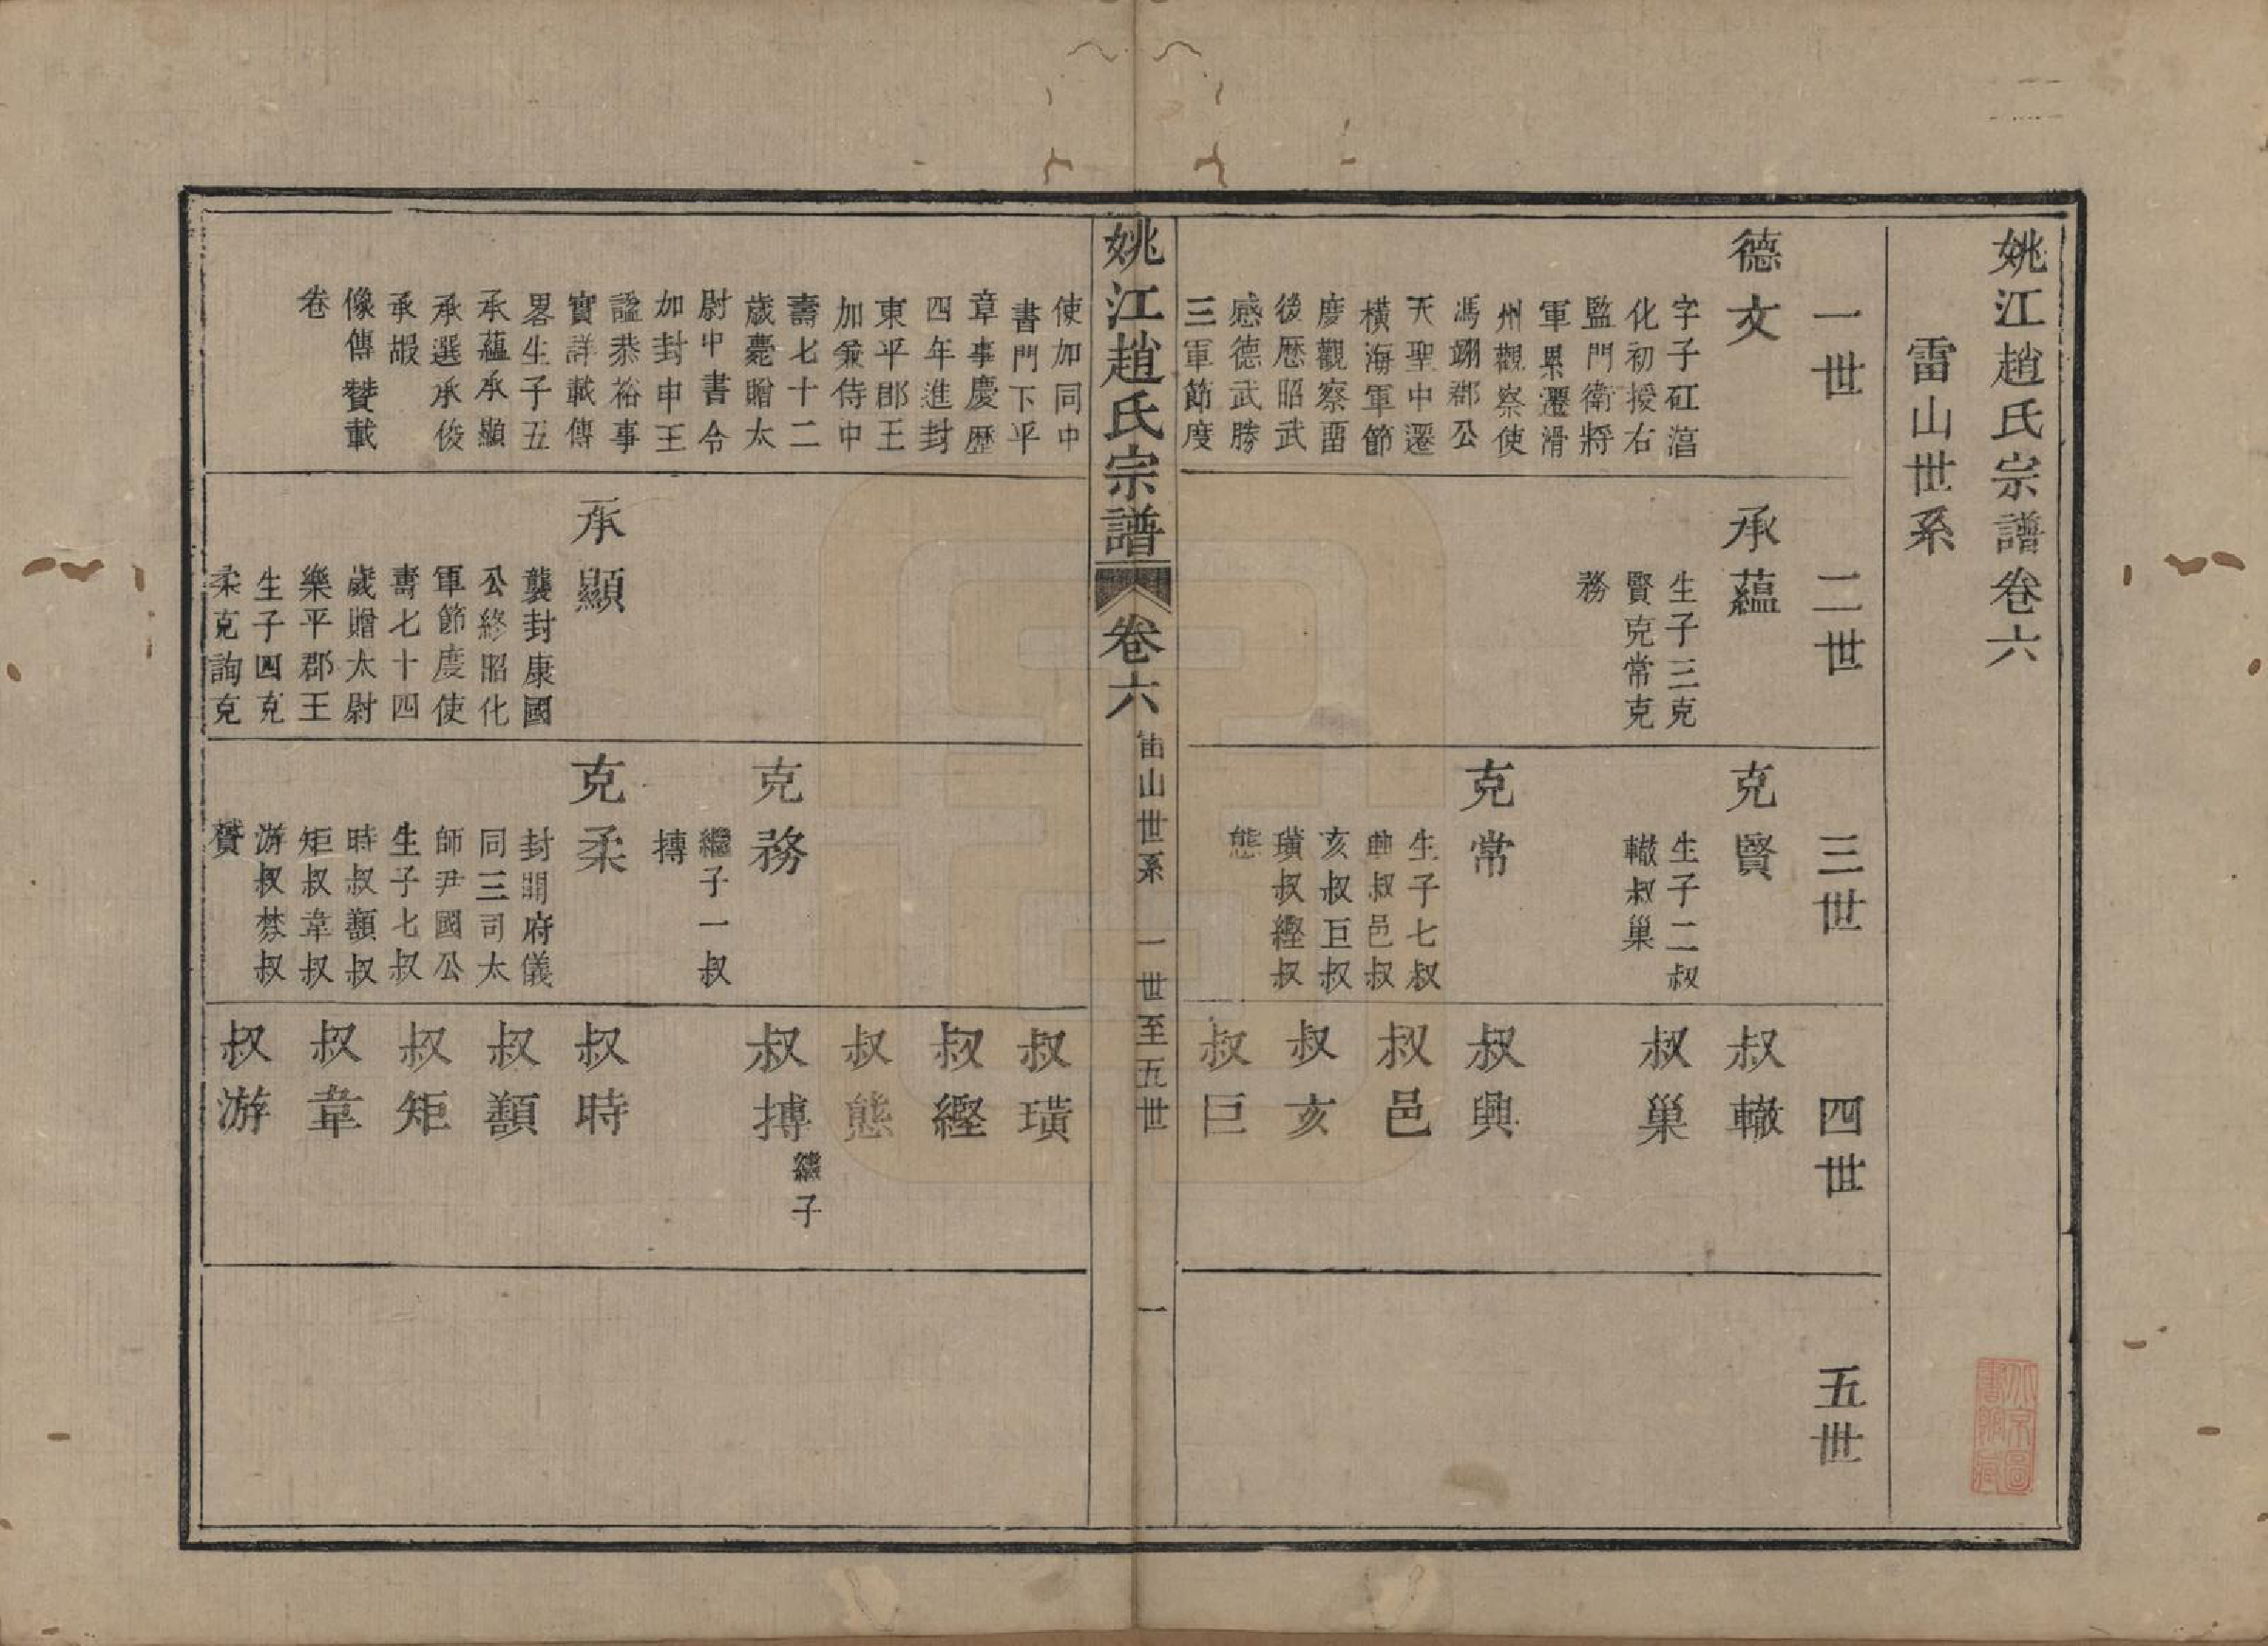 姚江趙氏宗譜卷六
雷山世系
一世
二世
三世
四世
五世
德文
字子矼湻
化初授右
監門衛將
軍累遷滑
州觀察使
馮翊郡公
天聖中遷
橫海軍節
度觀察畱
後歷昭武
感德武勝
三軍節度
承蘊
生子三克
賢克常克
務
克賢
生子二叔
轍叔巢
克常
生子七叔
叔邑叔
亥叔巨叔
璜叔繦叔
態
叔轍
叔巢
叔興
叔邑
叔亥
叔巨
姚江趙氏宗譜
卷六
雷山世系
一世至五世
一
使加同中
書門下平
章事慶歷
四年進封
東平郡王
加兼侍中
壽七十二
歲薨贈太
尉中書令
加封申王
謚恭裕事
實詳載傳
畧生子五
承蘊承顯
承選承俊
承嘏
像傳贊載
卷
承顯
襲封康國
公終昭化
軍節度使
壽七十四
歲贈太尉
樂平郡王
生子四克
柔克詢克
克務
繼子一叔
摶
克柔
封開府儀
同三司太
師尹國公
生子七叔
時叔纇叔
矩叔韋叔
游叔棼叔
叔璜
叔繦
叔態
叔摶
繼子
叔時
叔纇
叔矩
叔韋
叔游